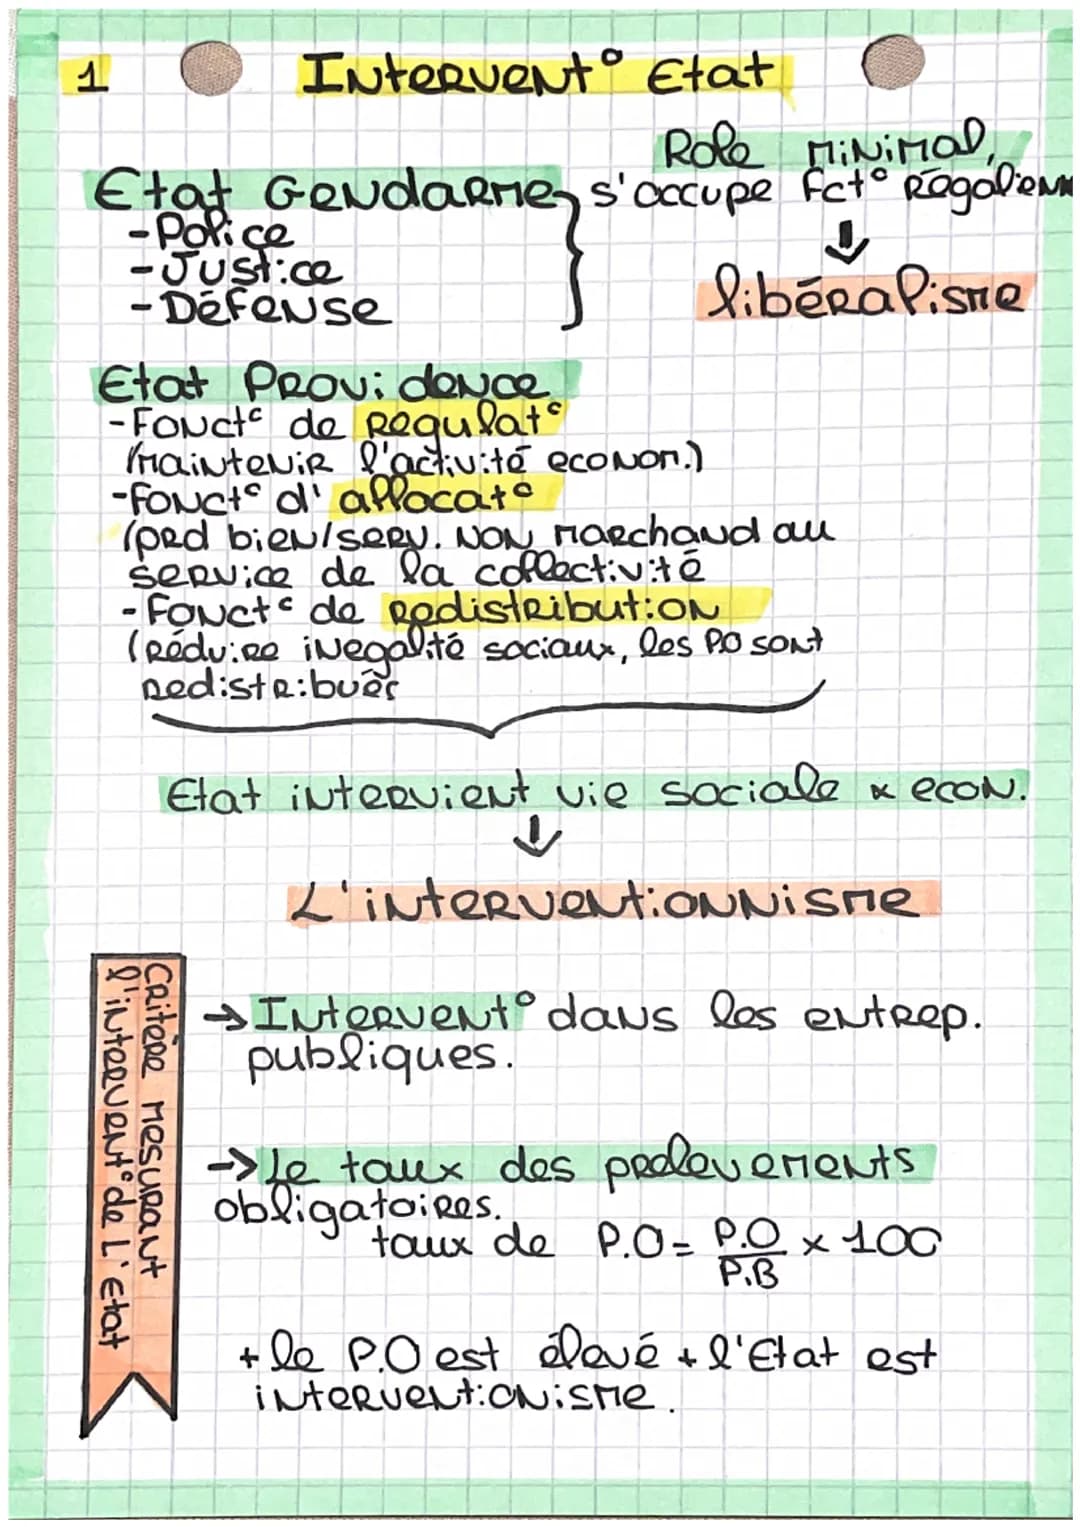 1 Intervent° Etat
Role minimal,
Etat Gendarme s'occupe fct° Régalienn
-Police
-Justice
-Défense
↓
libéralisme
Etat Providence
-Fonct° de Regulat°
(maintenir l'activité econom.)
-Fonct° d'allocat°
(prd bien/serv. non marchand au
service de la collectivité
-Fonct° de Redistribution
(Réduire inegalité sociaux, les PO sont
redistribués
Etat intervient vie sociale & econ.
↓
L'interventionnisme
Critère mesurant
l'intervent° de L'Etat
→ Intervent° dans les entrep.
publiques.
-> Le taux des prelevements
obligatoires.
taux de P.O = P.O / P.B x 100
+ le P.O est élevé + l'Etat est
interventionisme.